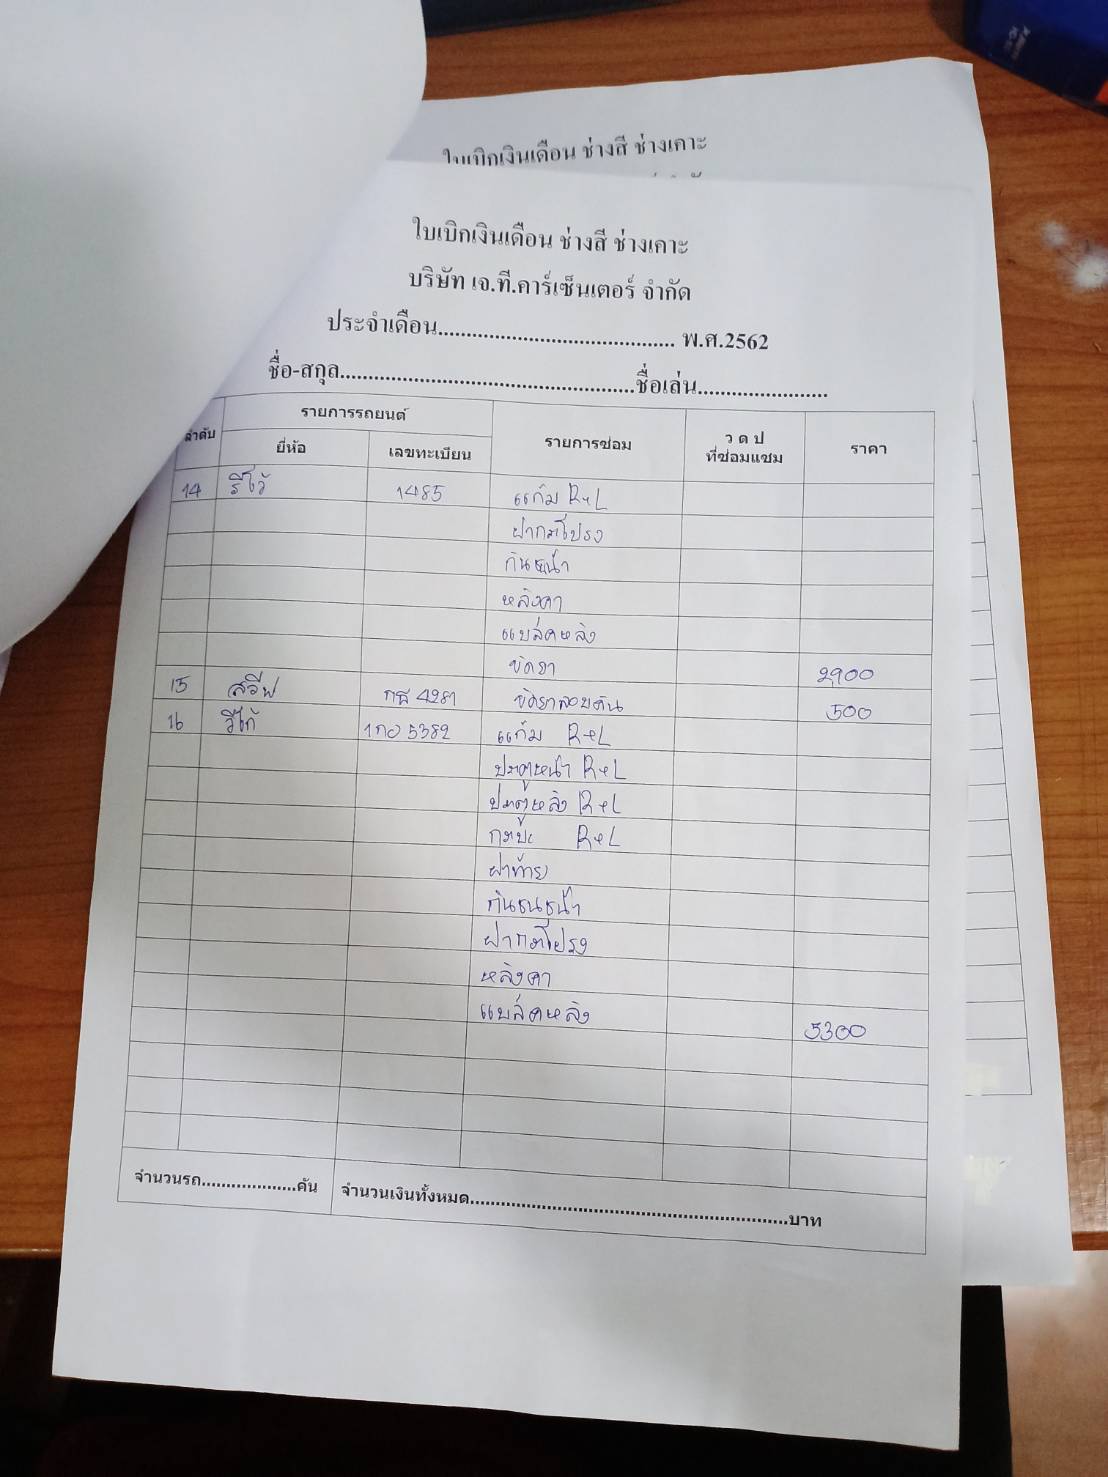 ใบเบิกเงินเดือน ช่างสี ช่างเคาะ
ใบเบิกเงินเดือน ช่างสี ช่างเคาะ
บริษัท เจ.ที.คาร์เซ็นเตอร์ จำกัด
ประจำเดือน.......................................... พ.ศ.2562
ชื่อ-สกุล....................................................ชื่อเล่น.......................
ลำดับ รายการรถยนต์ รายการซ่อม ว ด ป ที่ซ่อมแซม ราคา
ยี่ห้อ เลขทะเบียน
14 รีโว้ 1485 แก้ม R+L
ฝากระโปรง
กันชนหน้า
หลังคา
แบล็คหลัง
ขัดยา 2900
15 สวีฟ กธ 4281 ขัดยารอบคัน 500
16 วีโก้ 1กอ 5382 แก้ม R+L
ประตูหน้า R+L
ประตูหลัง R+L
กระบะ R+L
ฝาท้าย
กันชนหน้า
ฝากระโปรง
หลังคา
แบล็คหลัง
5300
จำนวนรถ...................คัน จำนวนเงินทั้งหมด.........................................................บาท